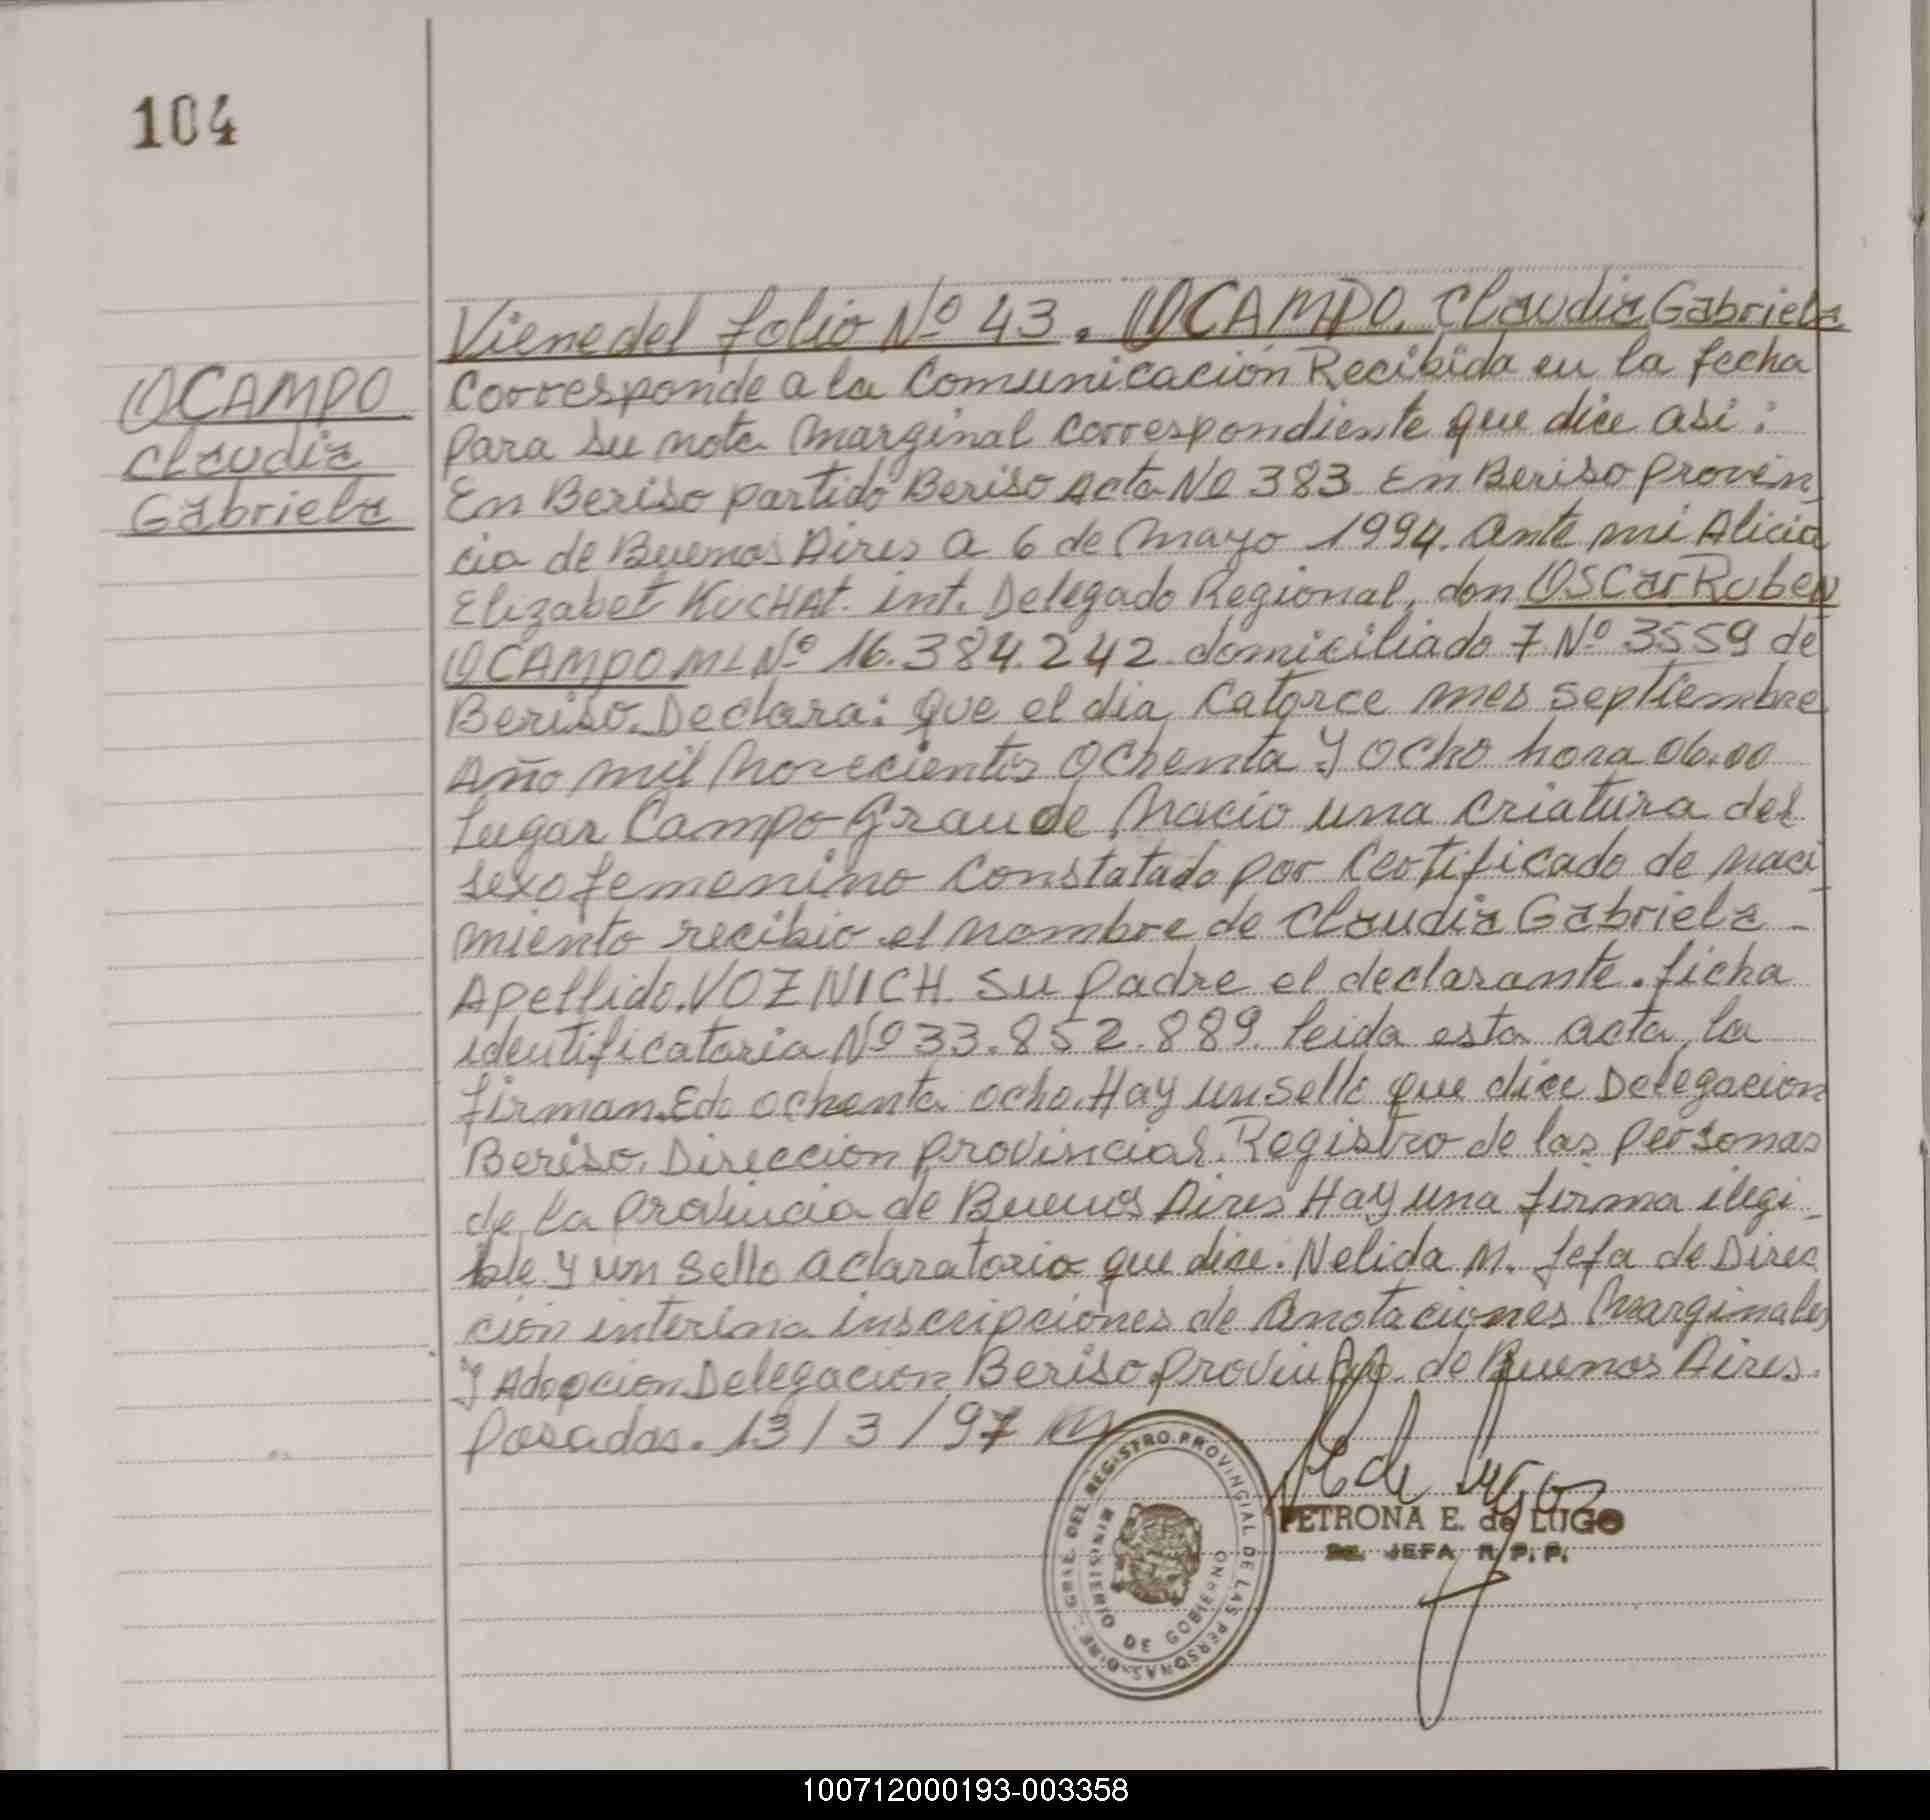 104
Viene del folio Nº 43. OCAMPO. Claudia Gabriela
OCAMPO
Claudia
Gabriela
Corresponde a la Comunicación Recibida en la fecha
para su nota marginal correspondiente que dice asi:
En Beriso partido Beriso Acta Nº 383 En Beriso provin
cia de Buenos Aires a 6 de Mayo 1994. Ante mi Alicia
Elizabet KUCHAt. int. Delegado Regional, don OSCar Ruben
OCAMPO MI Nº 16.384.242 domiciliado 7 Nº 3559 de
Beriso. Declara: que el dia Catorce mes septiembre
Año mil novecientos Ochenta y Ocho hora 06.00
Lugar Campo Grande Nacio una criatura del
sexo femenino Constatado por Certificado de naci
miento recibio el nombre de Claudia Gabriela -
Apellido. VOZNICH. Su padre el declarante. ficha
identificatoria Nº 33.852.889. leida esta acta la
firman. Edo ochenta ocho. Hay un sello que dice Delegacion
Beriso. Direccion provincial. Registro de las personas
de la provincia de Buenos Aires Hay una firma ilegi-
ble y un sello aclaratorio que dice: Nelida M. Jefa de Direc
cion interina inscripciones de Anotaciones Marginales
y Adopcion Delegacion Beriso provincia de Buenos Aires.
Posadas. 13/3/97
DIRE. GRAL. DEL REGISTRO PROVINCIAL DE LAS PERSONAS
MINISTERIO DE GOBIERNO
PETRONA E. de LUGO
JEFA R.P.P.
100712000193-003358